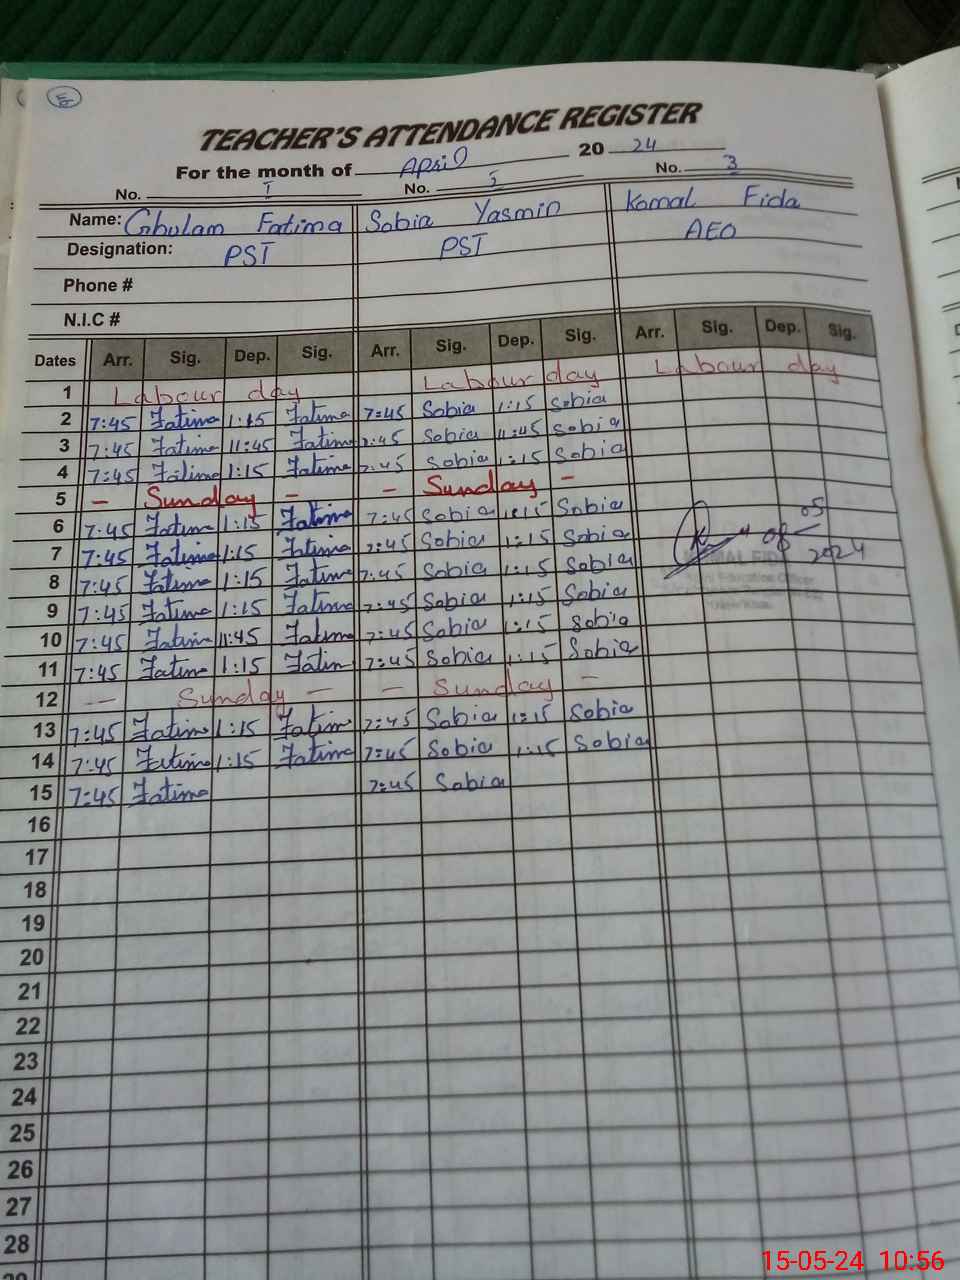 TEACHER'S ATTENDANCE REGISTER
For the month of April 20 24
No. I No. 2 No. 3
Name: Ghulam Fatima Sobia Yasmin Komal Fida
Designation: PST PST AEO
Phone #
N.I.C #
Dates Arr. Sig. Dep. Sig. Arr. Sig. Dep. Sig. Arr. Sig. Dep. Sig.
1 Labour day Labour day Labour day
2 7:45 Fatima 1:15 Fatima 7:45 Sobia 1:15 Sobia
3 7:45 Fatima 11:45 Fatima 7:45 Sobia 11:45 Sobia
4 7:45 Fatima 1:15 Fatima 7:45 Sobia 1:15 Sobia
5 – Sunday – – Sunday –
6 7:45 Fatima 1:15 Fatima 7:45 Sobia 1:15 Sobia 08 05
7 7:45 Fatima 1:15 Fatima 7:45 Sobia 1:15 Sobia KOMAL FIDA 2024
8 7:45 Fatima 1:15 Fatima 7:45 Sobia 1:15 Sobia Education Officer
9 7:45 Fatima 1:15 Fatima 7:45 Sobia 1:15 Sobia
10 7:45 Fatima 11:45 Fatima 7:45 Sobia 1:15 Sobia
11 7:45 Fatima 1:15 Fatim 7:45 Sobia 1:15 Sobia
12 – Sunday – – Sunday –
13 7:45 Fatima 1:15 Fatim 7:45 Sobia 1:15 Sobia
14 7:45 Fatima 1:15 Fatima 7:45 Sobia 1:15 Sobia
15 7:45 Fatima 7:45 Sobia
16
17
18
19
20
21
22
23
24
25
26
27
28
15-05-24 10:56